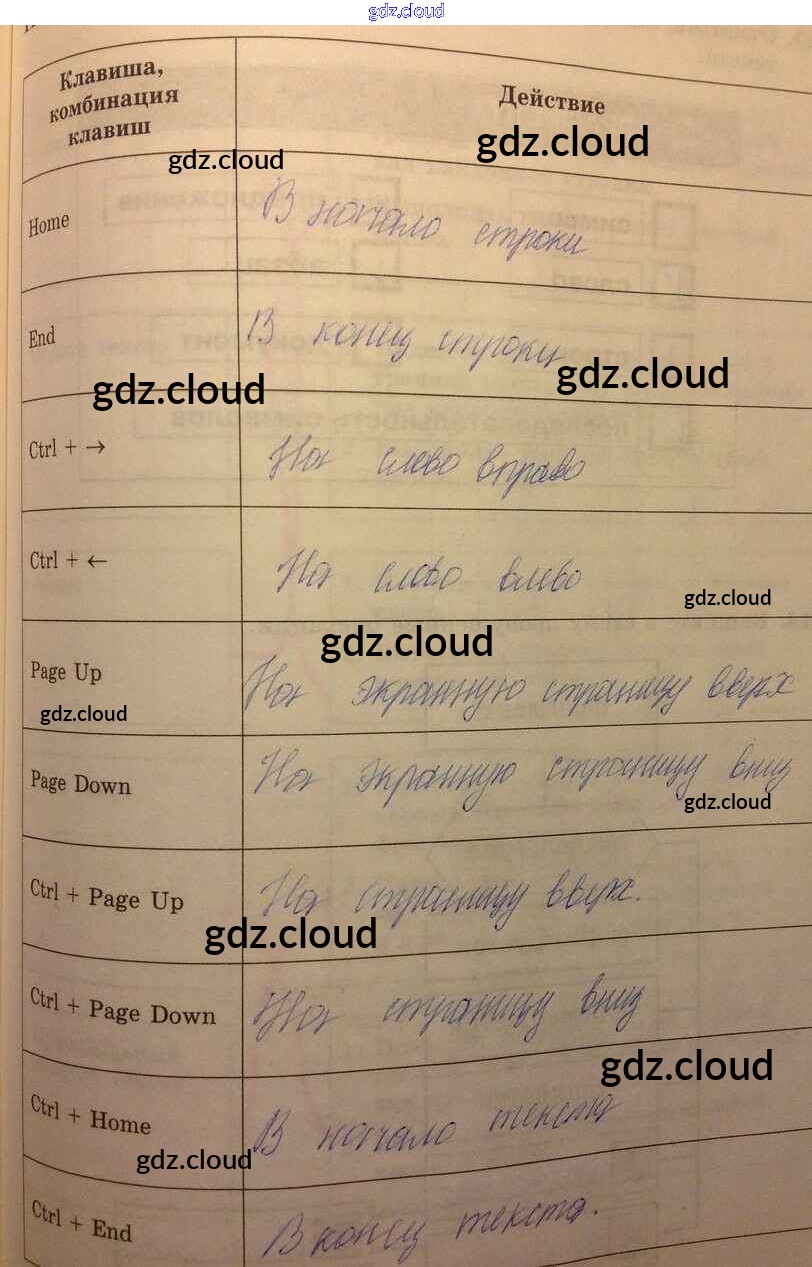 gdz.cloud
Клавиша,
комбинация
клавиш
Действие
gdz.cloud
gdz.cloud
Home
В начало строки
End
В конец строки
gdz.cloud
gdz.cloud
Ctrl + →
На слово вправо
Ctrl + ←
На слово влево
gdz.cloud
gdz.cloud
Page Up
На экранную страницу вверх
gdz.cloud
Page Down
На экранную страницу вниз
gdz.cloud
Ctrl + Page Up
На страницу вверх.
gdz.cloud
Ctrl + Page Down
На страницу вниз
gdz.cloud
Ctrl + Home
В начало текста
gdz.cloud
Ctrl + End
В конец текста.